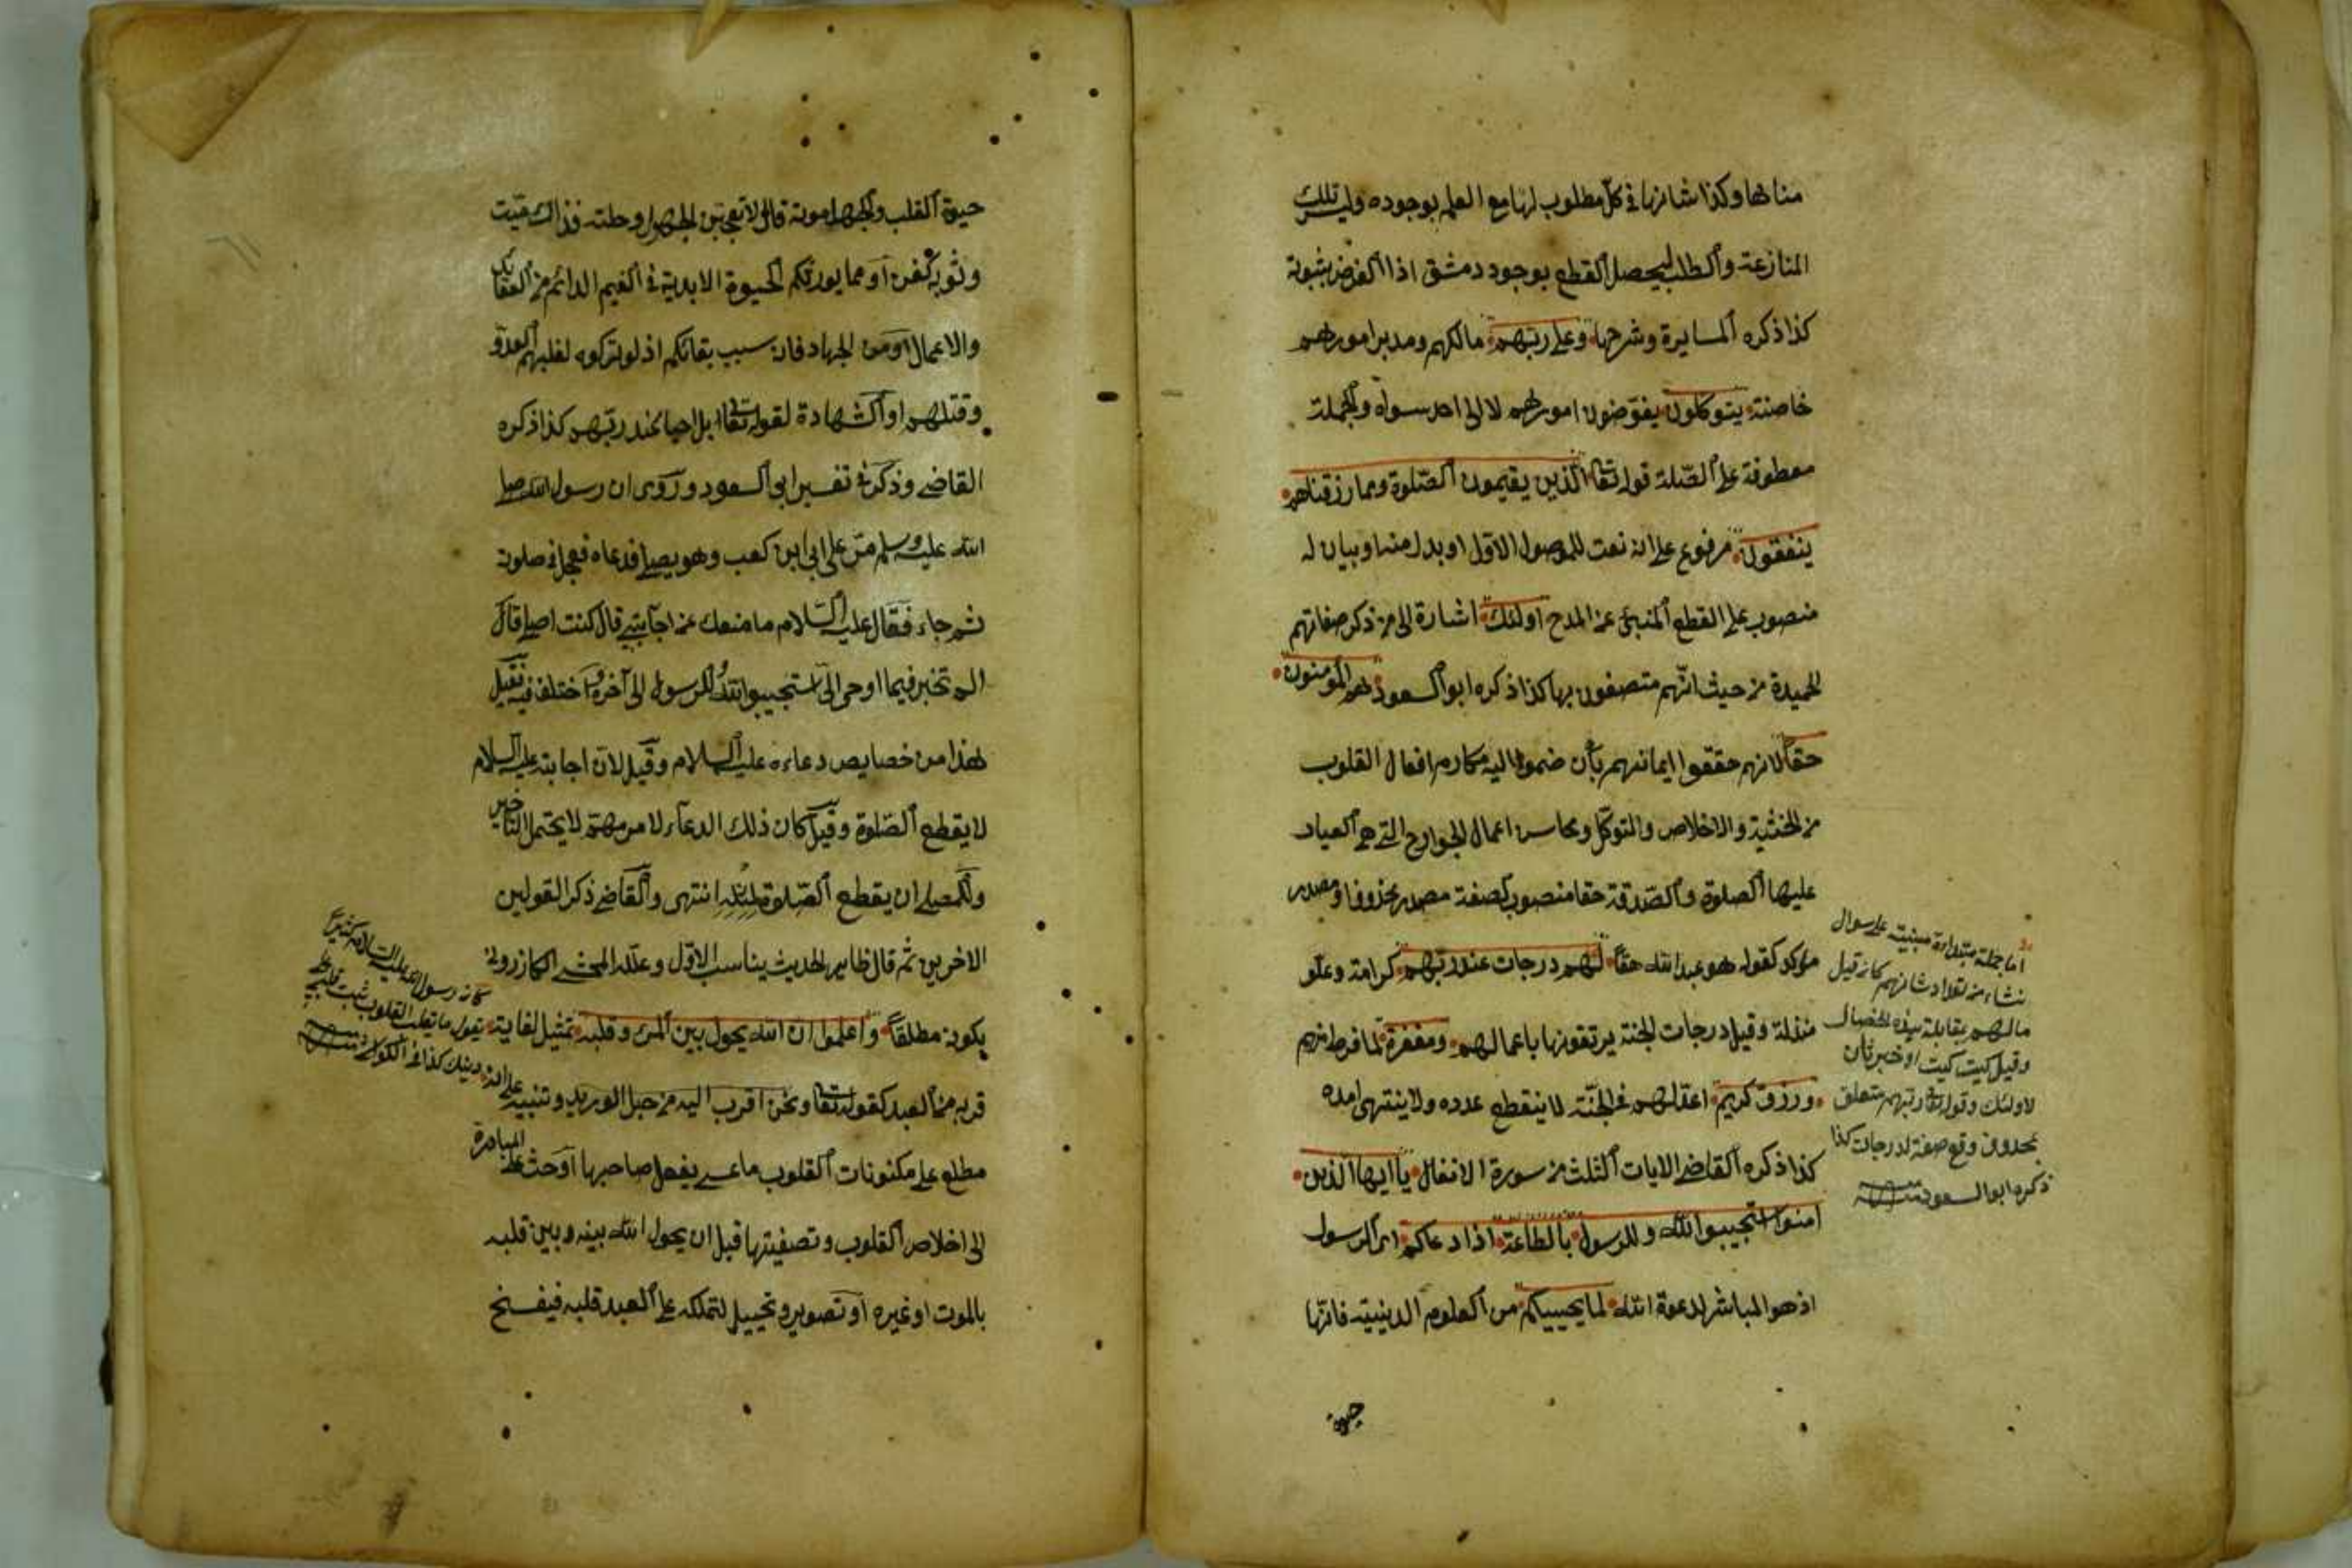 مناطها وكذا شانها في كل مطلوب لها مع العلم بوجوده وليس تلك
المنازعة والطلب ليحصل القطع بوجود دمشق اذا الفرض ثبوته
كذا ذكره المسايرة وشرحها وعلى ربهم مالكهم ومدبر امورهم
خاصة يتوكلون يفوضون امورهم لا الى احد سواه والجملة
معطوفة على الصلة قوله تعا الذين يقيمون الصلوة ومما رزقناهم
ينفقون مرفوع على انه نعت للموصول الاول او بدل منه او بيان له
منصوب على القطع المنبئ عن المدح اولئك اشارة الى من ذكر صفاتهم
الحميدة من حيث انهم متصفون بها كذا ذكره ابو السعود هم المؤمنون
حقا لانهم حققوا ايمانهم بأن ضموا اليه مكارم افعال القلوب
من الخشية والاخلاص والتوكل ومحاسن اعمال الجوارح التي هي العيار
عليها الصلوة والصدقة حقا منصوب لصفة مصدر محذوف او مصدر
مؤكد كقوله هو عبد الله حقا لهم درجات عند ربهم كرامة وعلو
منزلة وقيل درجات الجنة يرتقونها باعمالهم ومغفرة لما فرط منهم
ورزق كريم اعد لهم في الجنة لا ينقطع عدده ولا ينتهى امده
كذا ذكره القاضي الايات الثلث من سورة الانفال يا ايها الذين
امنوا استجيبوا لله وللرسول بالطاعة اذا دعاكم اى الرسول
اذ هو المباشر لدعوة الله لما يحييكم من العلوم الدينية فانها
حيوة
اما جملة مبتدأة مبنية على سوال
نشاء من تعداد شانهم كانه قيل
مالهم بمقابلة هذه الخصال
وقيل كيت كيت او خبر ثان
لاولئك وقوله تعا ربهم متعلق
بمحذوف وقع صفة لدرجات كذا
ذكره ابو السعود
حيوة القلب والجهل موته قال لا تعجبن الجهول وحلته فذاك ميت
وثوبه كفن او مما يورثكم الحيوة الابدية في النعيم الدائم من العقائد
والاعمال او من الجهاد فانه سبب بقائكم اذ لو تركوه لغلبهم العدو
وقتلهم او الشهادة لقوله تعا بل احيا عند ربهم كذا ذكره
القاضي وذكر في تفسير ابو السعود وروى ان رسول الله صلى
الله عليه وسلم مر على ابي ابن كعب وهو يصلي فدعاه فعجل في صلوته
ثم جاء فقال عليه السلام ما منعك عن اجابتي قال كنت اصلي قال
الم تخبر فيما اوحى الى استجيبوا لله وللرسول الى آخره واختلف فيه فقيل
هذا من خصايص دعاءه عليه السلام وقيل لان اجابته عليه السلام
لا يقطع الصلوة وقيل كان ذلك الدعاء لامر مهم لا يحتمل التاخير
وللمصلي ان يقطع الصلوة لمثله انتهى والقاضي ذكر القولين
الاخرين ثم قال ظاهر الحديث يناسب الاول وعلله المحشي الكازروني
يكونه مطلقا واعلموا ان الله يحول بين المرء وقلبه تمثيل لغاية
قربه من العبد كقوله تعا ونحن اقرب اليه من حبل الوريد وتنبيه على انه
مطلع على مكنونات القلوب ما عسى يغفل صاحبها او حث على المبادرة
الى اخلاص القلوب وتصفيتها قبل ان يحول الله بينه وبين قلبه
بالموت او غيره او تصوير وتخييل لتملكه على العبد قلبه فيفسخ
كان رسول الله عليه السلام كثيرا
يقول ما تقلب القلوب ثبت قلبي على
دينك كذا في الكواشي